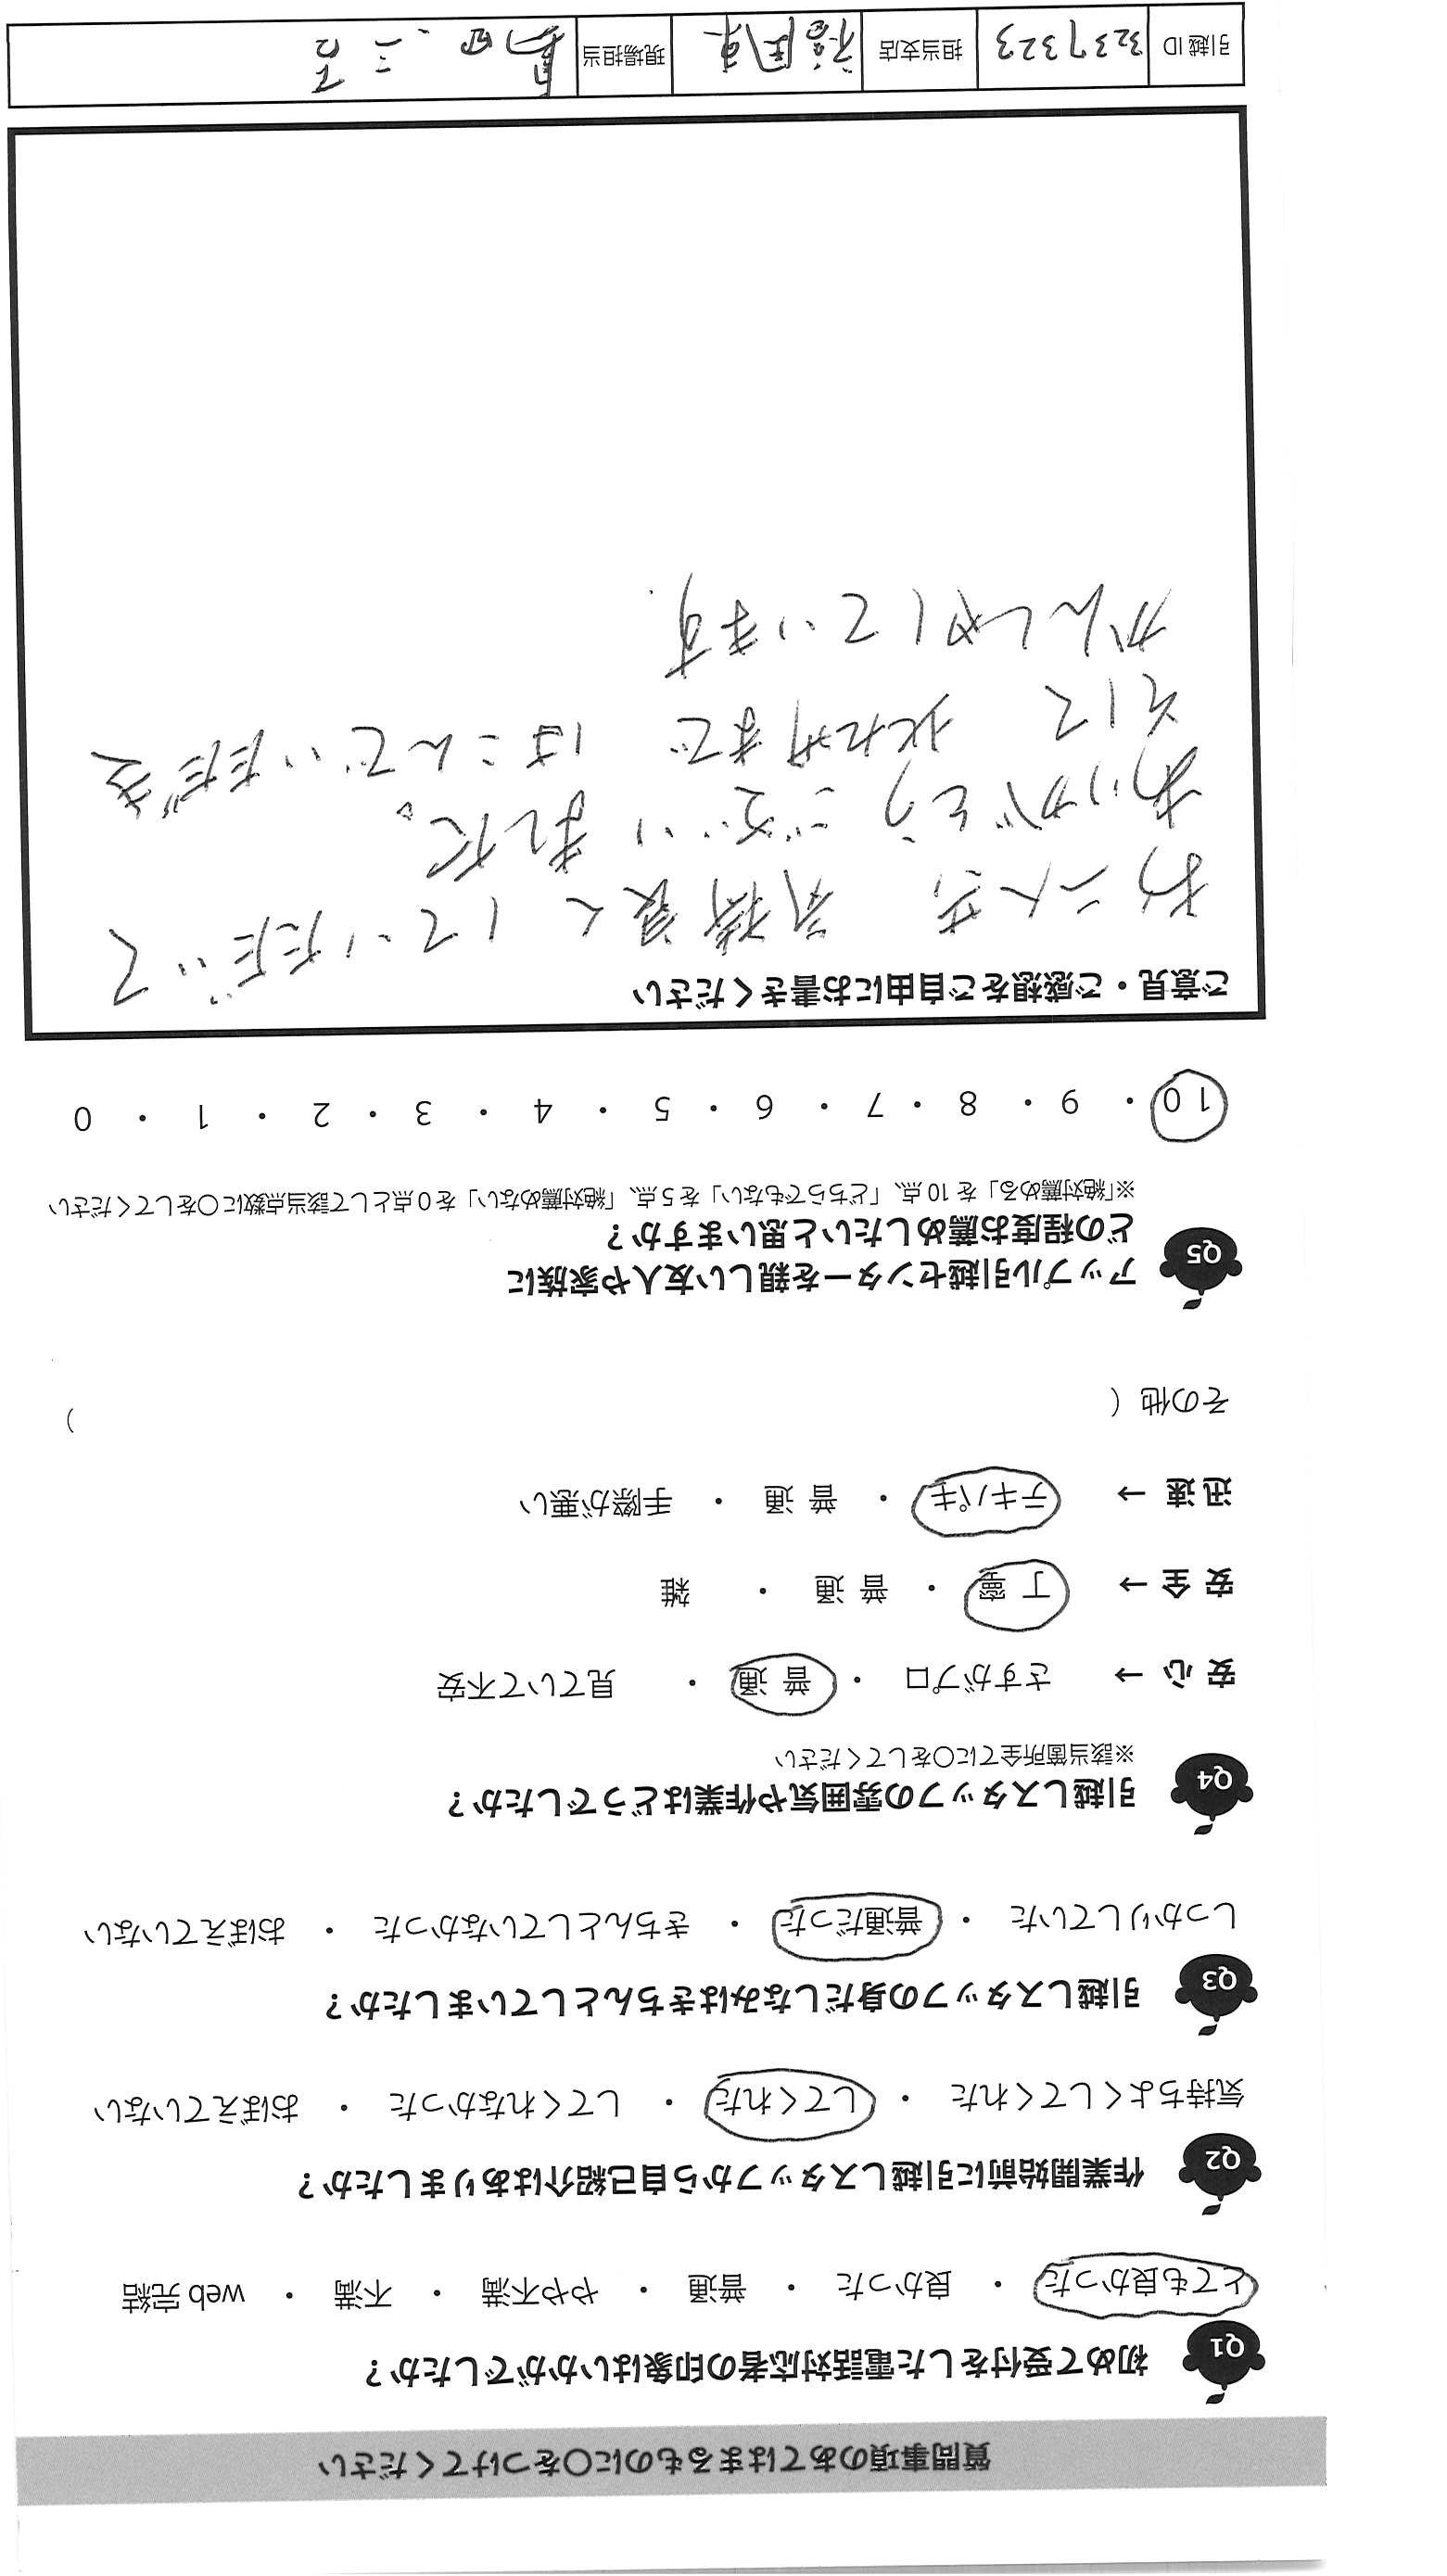 質問事項のあてはまるものに○をつけてください
Q1 初めて受付をした電話対応者の印象はいかがでしたか？
とても良かった ・ 良かった ・ 普通 ・ やや不満 ・ 不満 ・ web 完結
Q2 作業開始前に引越しスタッフから自己紹介はありましたか？
気持ちよくしてくれた ・ してくれた ・ してくれなかった ・ おぼえていない
Q3 引越しスタッフの身だしなみはきちんとしていましたか？
しっかりしていた ・ 普通だった ・ きちんとしていなかった ・ おぼえていない
Q4 引越しスタッフの雰囲気や作業はどうでしたか？
※該当箇所全てに○をしてください
安 心 → さすがプロ ・ 普 通 ・ 見ていて不安
安 全 → 丁 寧 ・ 普 通 ・ 雑
迅 速 → テキパキ ・ 普 通 ・ 手際が悪い
その他（ ）
Q5 アップル引越センターを親しい友人や家族に
どの程度お薦めしたいと思いますか？
※「絶対薦める」を 10 点、「どちらでもない」を 5 点、「絶対薦めない」を 0 点として該当点数に○をしてください
10 ・ 9 ・ 8 ・ 7 ・ 6 ・ 5 ・ 4 ・ 3 ・ 2 ・ 1 ・ 0
ご意見・ご感想をご自由にお書きください
お二人共 気持良くしていただいて
ありがとうございました。
そして 北九州まで はこんでいただき
かんしゃしています.
引越 ID 3237323 担当支店 福岡東 現場担当